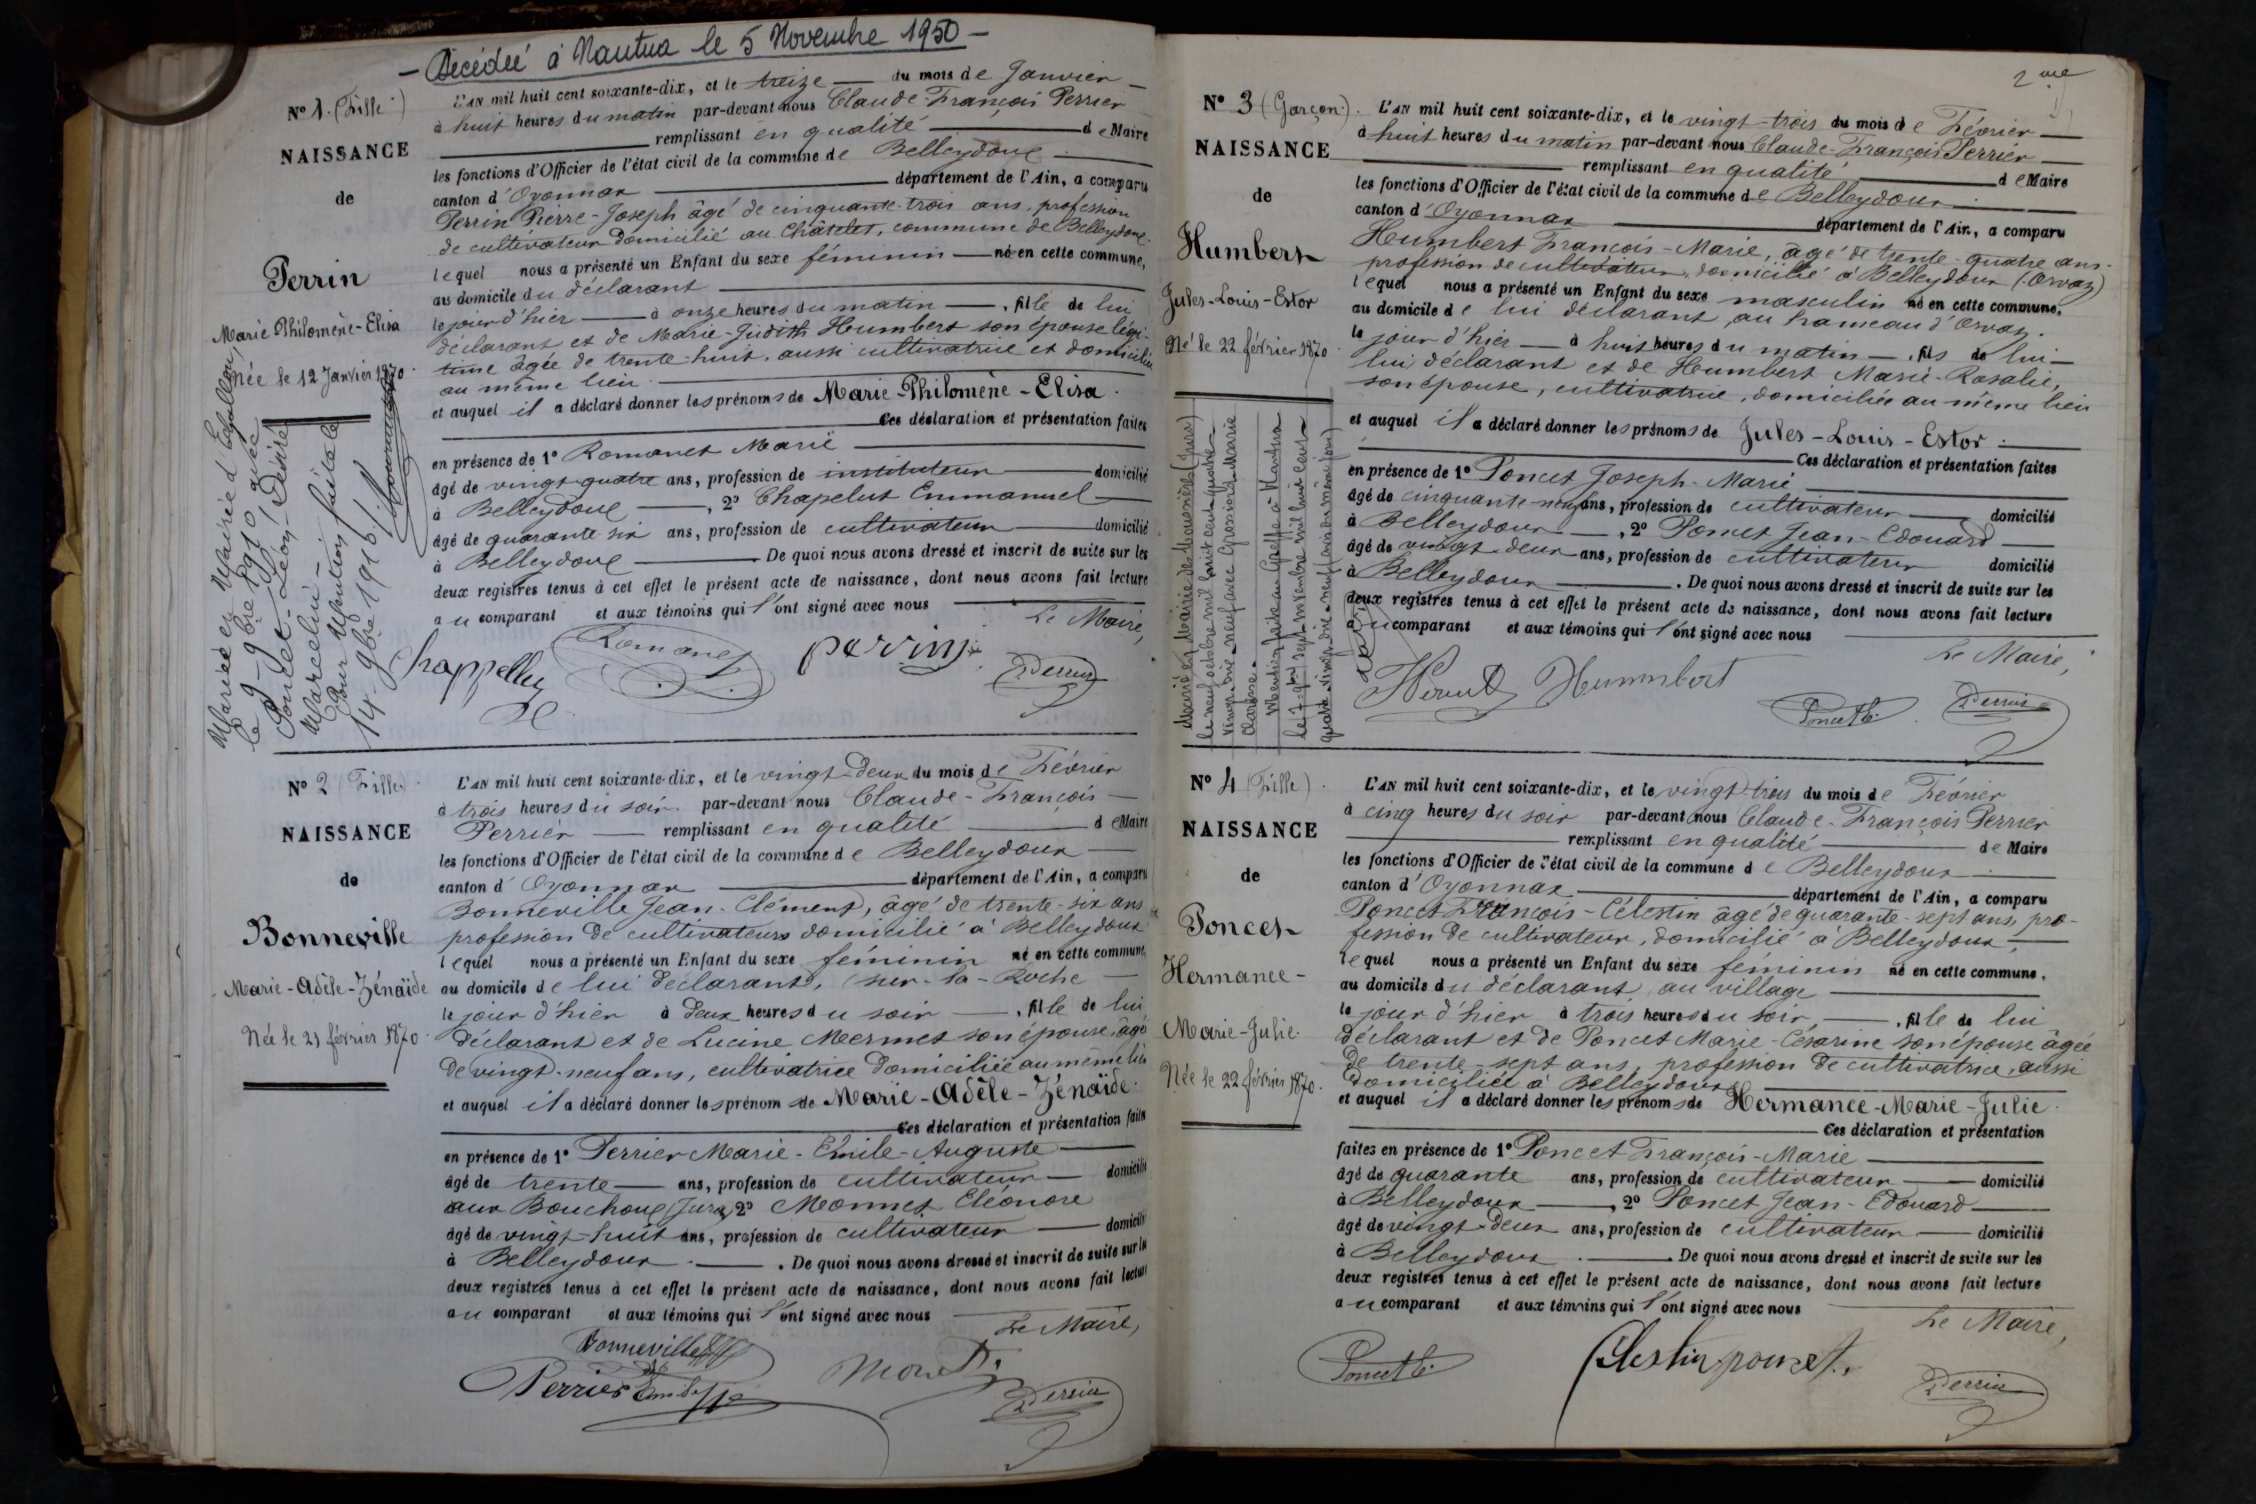 - Décédée à Nantua le 5 Novembre 1950 -
N° 1. (Fille)
NAISSANCE
de
Perrin
Marie Philomène-Elisa
née le 12 Janvier 1870.
Mariée en Mairie d'Echallon,
le 9 - 9bre 1910 avec
Poncet-Léon-Désiré
Marcelin -
Pour Mention faite le
14 - 9bre 1916
L'AN mil huit cent soixante-dix, et le treize du mois de Janvier
à huit heures du matin par-devant nous Claude-François Perrier
remplissant en qualité de Maire
les fonctions d'Officier de l'état civil de la commune de Belleydoux
canton d'Oyonnax département de l'Ain, a comparu
Perrin Pierre-Joseph âgé de cinquante-trois ans, profession
de cultivateur domicilié au Châtelet, commune de Belleydoux.
lequel nous a présenté un Enfant du sexe féminin né en cette commune,
au domicile du déclarant
le jour d'hier à onze heures du matin, fille de lui
déclarant et de Marie-Judith Humbert son épouse légi-
time âgée de trente-huit, aussi cultivatrice et domiciliée
au même lieu.
et auquel il a déclaré donner les prénoms de Marie-Philomène-Elisa.
Ces déclaration et présentation faites
en présence de 1° Romanet Marie
âgé de vingt-quatre ans, profession de instituteur domicilié
à Belleydoux, 2° Chapelut Emmanuel
âgé de quarante six ans, profession de cultivateur domicilié
à Belleydoux De quoi nous avons dressé et inscrit de suite sur les
deux registres tenus à cet effet le présent acte de naissance, dont nous avons fait lecture
au comparant et aux témoins qui l'ont signé avec nous
Le Maire,
Chappelluz Romanet perrin Perrier
N° 2 (Fille).
NAISSANCE
de
Bonneville
Marie-Adèle-Zénaïde
Née le 21 février 1870.
L'AN mil huit cent soixante-dix, et le vingt-deux du mois de Février
à trois heures du soir par-devant nous Claude-François
Perrier remplissant en qualité de Maire
les fonctions d'Officier de l'état civil de la commune de Belleydoux
canton d'Oyonnax département de l'Ain, a comparu
Bonneville Jean-Clément, âgé de trente-six ans
profession de cultivateurs domicilié à Belleydoux
lequel nous a présenté un Enfant du sexe féminin né en cette commune
au domicile de lui déclarant, sur-la-Roche
le jour d'hier à deux heures du soir, fille de lui
déclarant et de Lucine Mermet son épouse, âgée
de vingt-neuf ans, cultivatrice domiciliée au même lieu
et auquel il a déclaré donner les prénoms de Marie-Adèle-Zénaïde.
Ces déclaration et présentation faites
en présence de 1° Perrier Marie-Emile-Auguste
âgé de trente ans, profession de cultivateur domicilié
aux Bouchoux (Jura) 2° Monnet Eléonore
âgé de vingt-huit ans, profession de cultivateur domicilié
à Belleydoux. De quoi nous avons dressé et inscrit de suite sur les
deux registres tenus à cet effet le présent acte de naissance, dont nous avons fait lecture
au comparant et aux témoins qui l'ont signé avec nous
Le Maire,
Bonneville
Perrier Emile Monet Perrier
2me
N° 3 (Garçon).
NAISSANCE
de
Humbert
Jules-Louis-Estor
Né le 22 février 1870.
Marié en Mairie de (Jura)
le neuf octobre mil huit cent quatre
vingt-dix-neuf avec Grossiord Marie
Clarisse.
Mention faite au Greffe à Nantua
le 7 9bre mil huit cent
quatre vingt dix-neuf
L'AN mil huit cent soixante-dix, et le vingt-trois du mois de Février
à huit heures du matin par-devant nous Claude-François Perrier
remplissant en qualité de Maire
les fonctions d'Officier de l'état civil de la commune de Belleydoux
canton d'Oyonnax département de l'Ain, a comparu
Humbert François-Marie, âgé de trente-quatre ans.
profession de cultivateur, domicilié à Belleydoux (Orvaz)
lequel nous a présenté un Enfant du sexe masculin né en cette commune,
au domicile de lui déclarant, au hameau d'Orvaz.
le jour d'hier à huit heures du matin, fils de lui
lui déclarant et de Humbert Marie-Rosalie,
son épouse, cultivatrice, domiciliée au même lieu
et auquel il a déclaré donner les prénoms de Jules-Louis-Estor.
Ces déclaration et présentation faites
en présence de 1° Poncet Joseph-Marie
âgé de cinquante-neuf ans, profession de cultivateur domicilié
à Belleydoux, 2° Poncet Jean-Edouard
âgé de vingt-deux ans, profession de cultivateur domicilié
à Belleydoux. De quoi nous avons dressé et inscrit de suite sur les
deux registres tenus à cet effet le présent acte de naissance, dont nous avons fait lecture
au comparant et aux témoins qui l'ont signé avec nous
Le Maire,
Hummbert Poncet Perrier
N° 4 (Fille).
NAISSANCE
de
Poncet
Hermance-
Marie-Julie.
Née le 22 février 1870.
L'AN mil huit cent soixante-dix, et le vingt-trois du mois de Février
à cinq heures du soir par-devant nous Claude-François Perrier
remplissant en qualité de Maire
les fonctions d'Officier de l'état civil de la commune de Belleydoux
canton d'Oyonnax département de l'Ain, a comparu
Poncet François-Célestin âgé de quarante-sept ans, pro-
fession de cultivateur, domicilié à Belleydoux,
lequel nous a présenté un Enfant du sexe féminin né en cette commune,
au domicile du déclarant, au village
le jour d'hier à trois heures du soir, fille de lui
déclarant et de Poncet Marie-Césarine son épouse âgée
de trente-sept ans, profession de cultivatrice, aussi
domiciliée à Belleydoux
et auquel il a déclaré donner les prénoms de Hermance-Marie-Julie.
Ces déclaration et présentation
faites en présence de 1° Poncet François-Marie
âgé de quarante ans, profession de cultivateur domicilié
à Belleydoux, 2° Poncet Jean-Edouard
âgé de vingt-deux ans, profession de cultivateur domicilié
à Belleydoux. De quoi nous avons dressé et inscrit de suite sur les
deux registres tenus à cet effet le présent acte de naissance, dont nous avons fait lecture
au comparant et aux témoins qui l'ont signé avec nous
Le Maire,
Poncet Célestin poncet Perrier